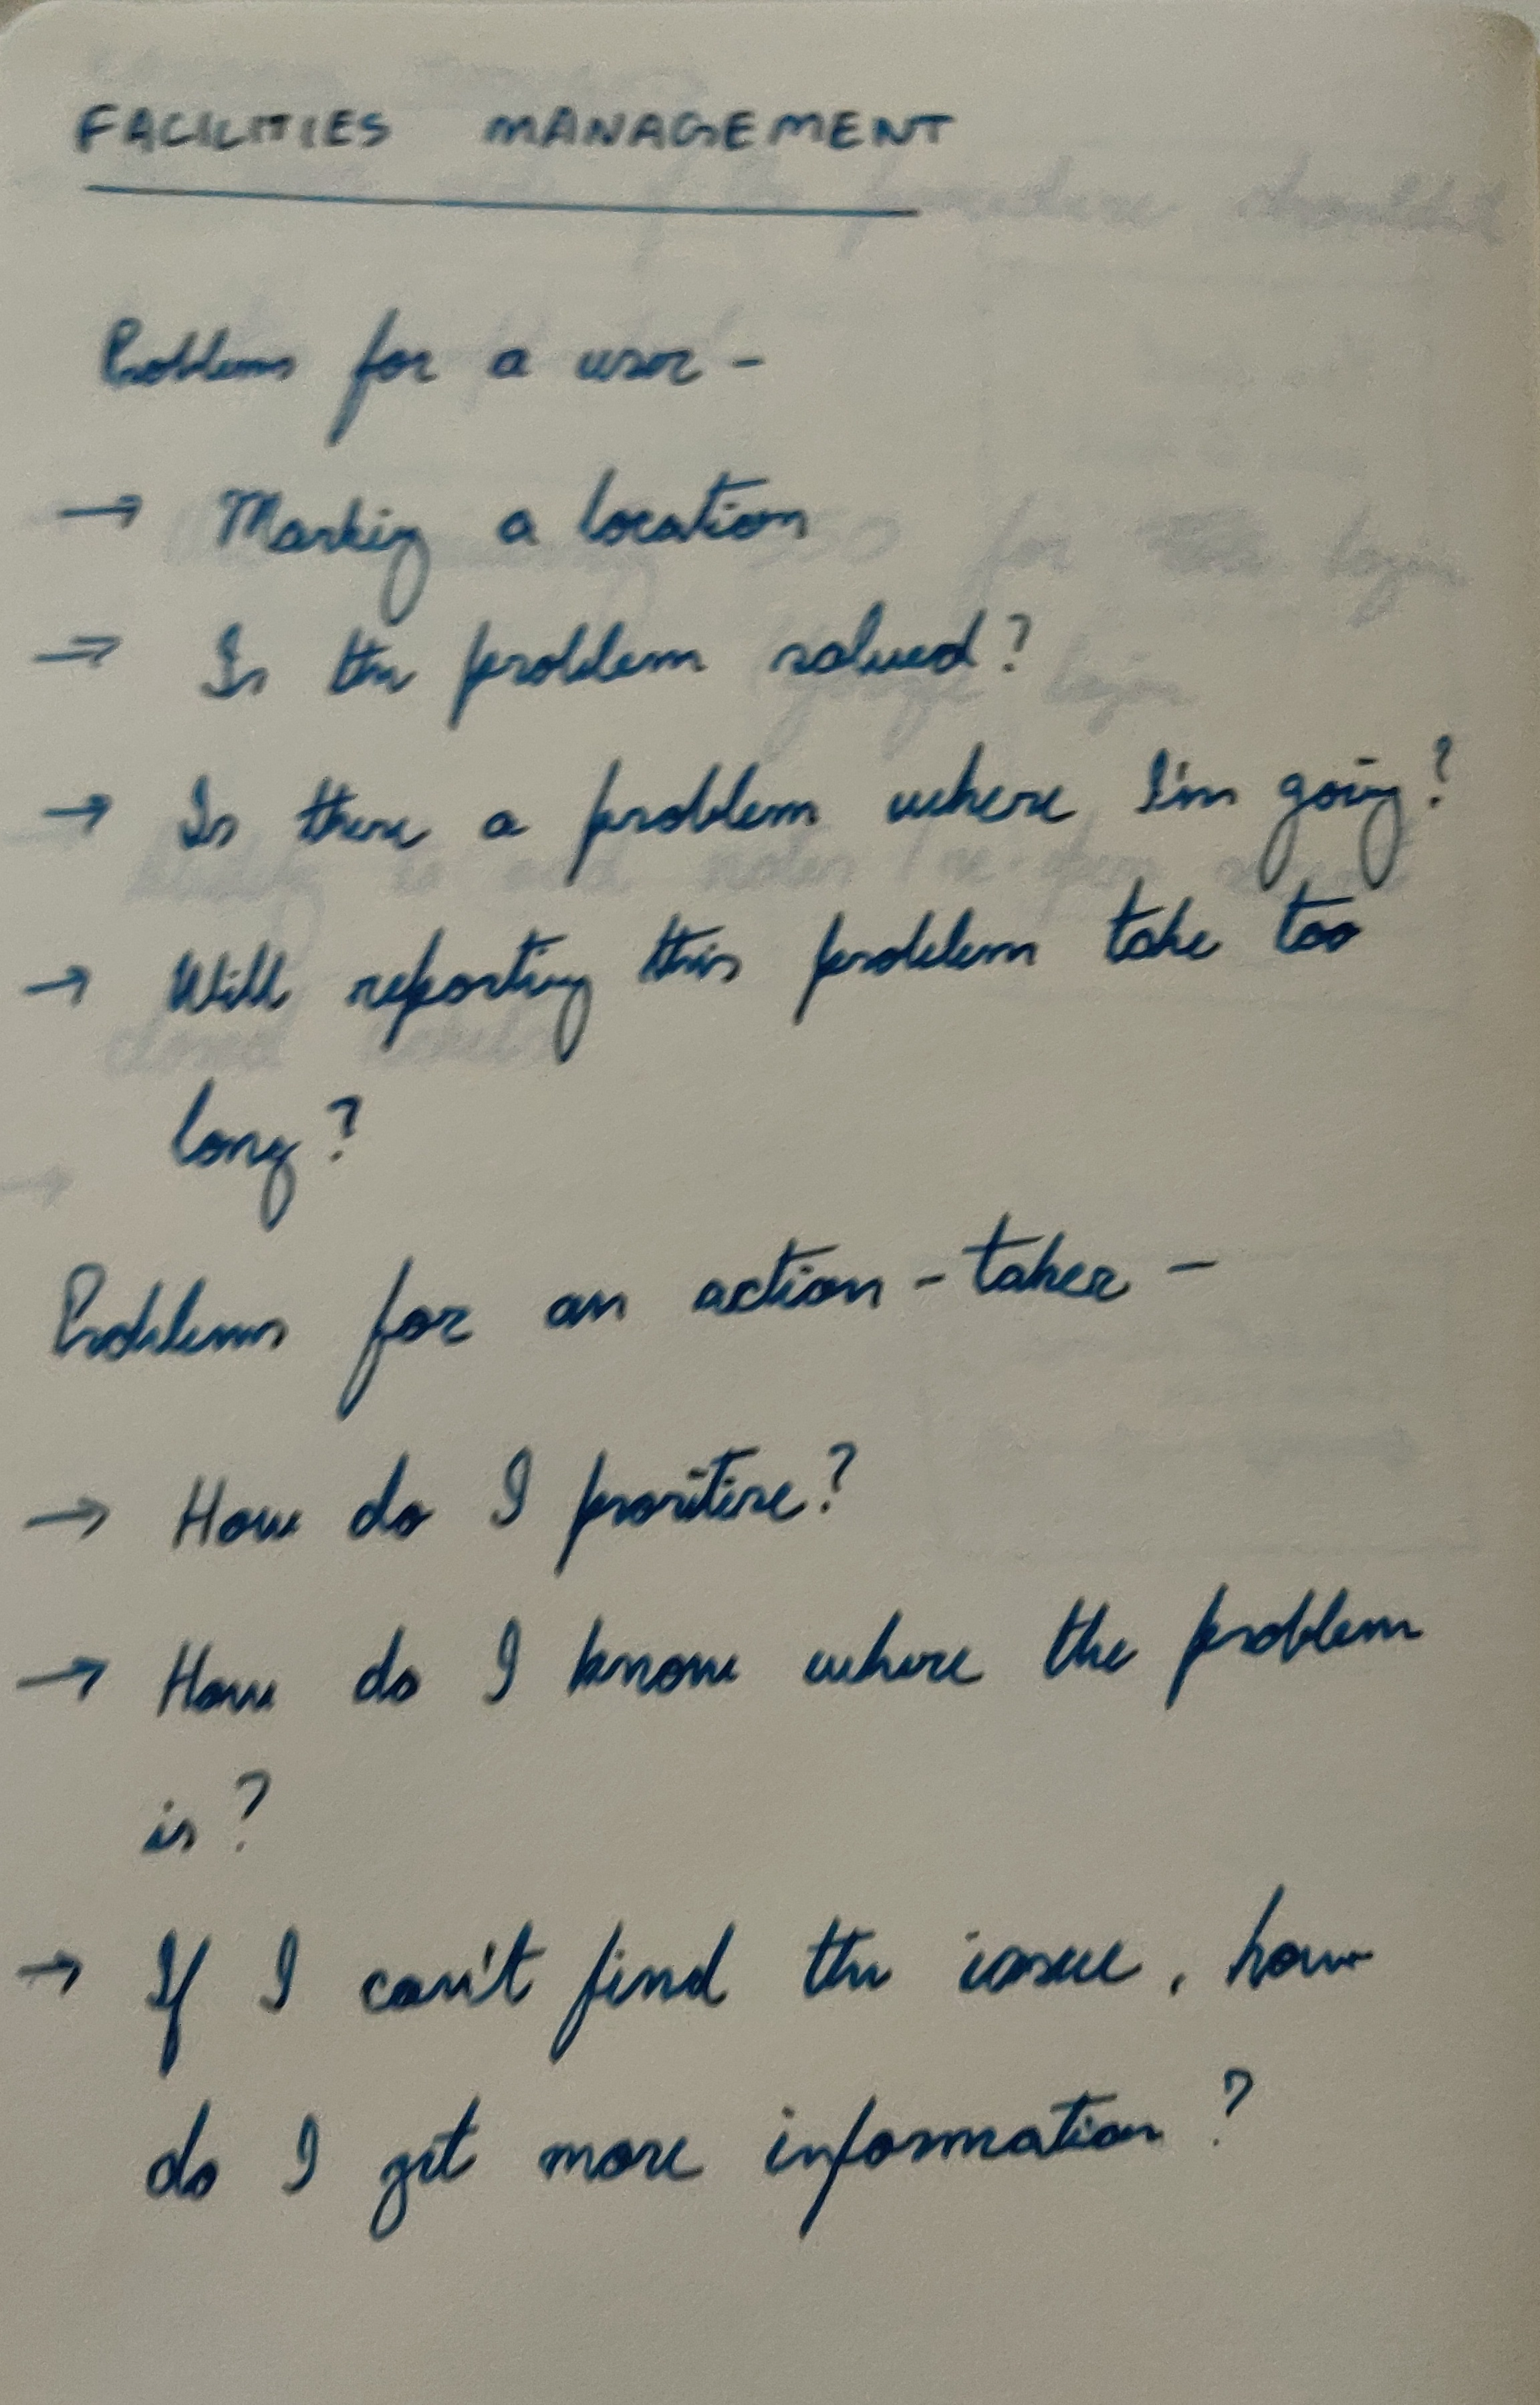 FACILITIES MANAGEMENT
Problems for a user -
→ Marking a location
→ Is the problem solved?
→ Is there a problem where I'm going?
→ Will reporting this problem take too
long?
Problems for an action-taker -
→ How do I prioritise?
→ How do I know where the problem
is?
→ If I can't find the issue, how
do I get more information?